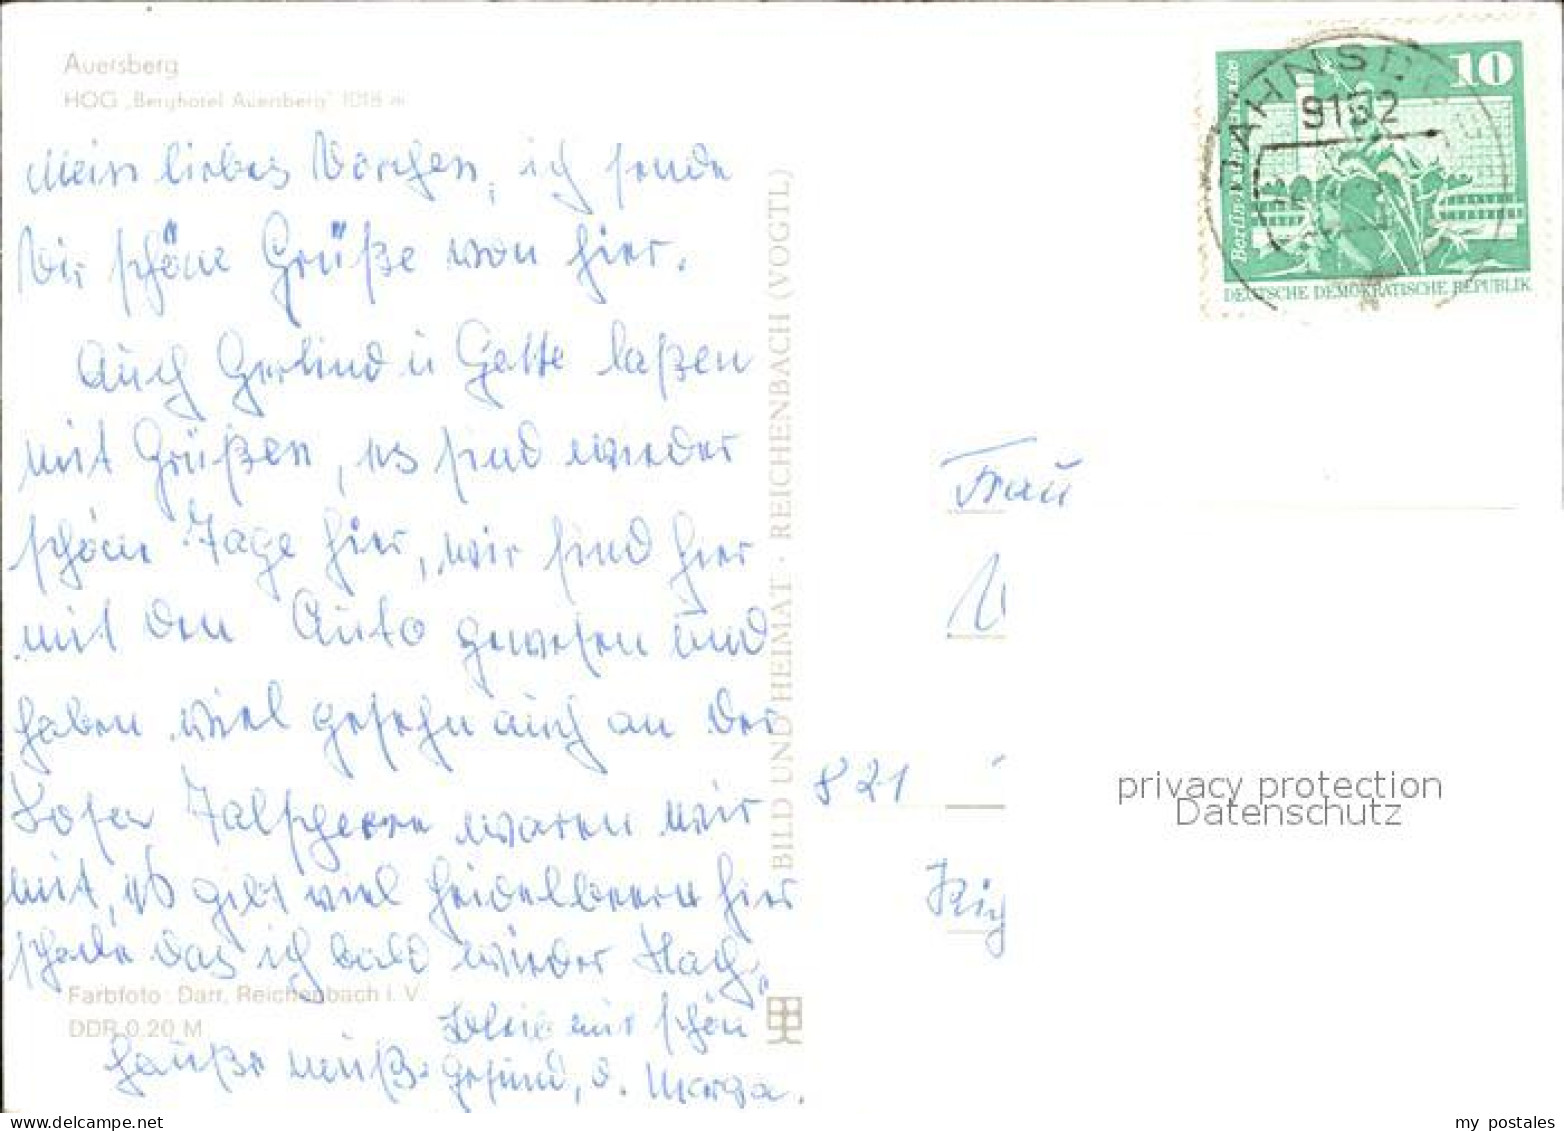 Auersberg
HOG „Berghotel Auersberg" 1018 m
Mein liebes Dorchen, ich sende
Dir schöne Grüße von hier.
Auch Gerlind u Gatte laßen
mit Grüßen, es sind wieder
schöne Tage hier, wir sind hier
mit den Auto gewesen und
haben viel gesehn auch an der
Sosaer Talsperre waren wir
mit, es gibt viel Heidelbeern hier
schade das ich bald wieder Nach
Hauße muß.
Bleib mir schön
Gesund, d.
Farbfoto: Darr, Reichenbach i. V.
DDR 0.20 M
BILD UND HEIMAT · REICHENBACH (VOGTL)
10
Berlin
DEUTSCHE DEMOKRATISCHE REPUBLIK
JAHNSD
9132
Frau
821
privacy protection
Datenschutz
delcampe.net
my_postales